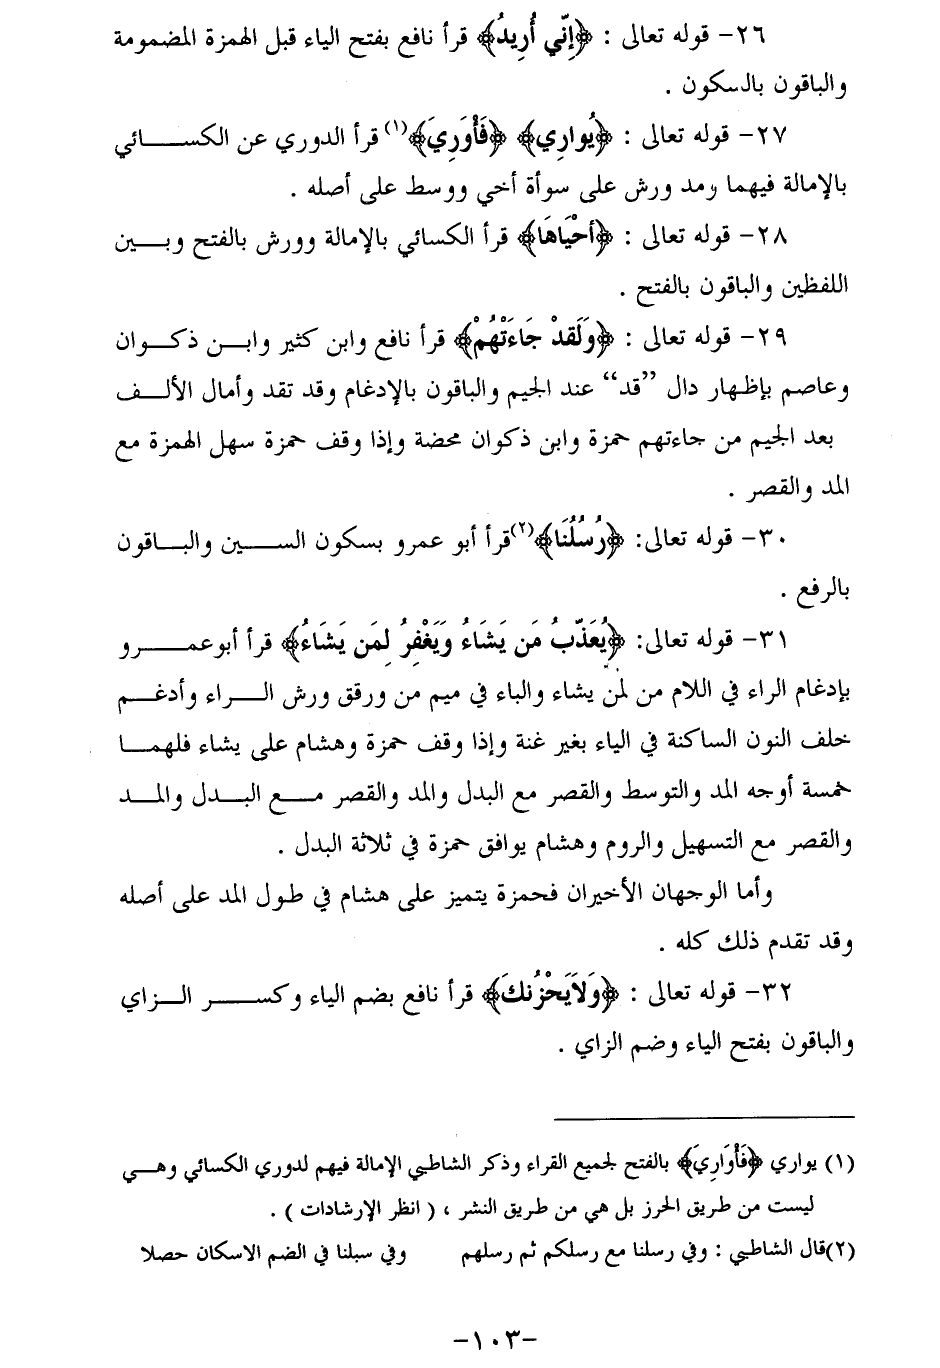 ٢٦- قوله تعالى : ﴿إِنّي أُرِيدُ﴾ قرأ نافع بفتح الياء قبل الهمزة المضمومة
والباقون بالسكون .
٢٧- قوله تعالى : ﴿يُوارِي﴾ ﴿فَأُوَرِيَ﴾(١) قرأ الدوري عن الكســـائي
بالإمالة فيهما ومد ورش على سوأة أخي ووسط على أصله .
٢٨- قوله تعالى : ﴿أحْيَاهَا﴾ قرأ الكسائي بالإمالة وورش بالفتح وبـــين
اللفظين والباقون بالفتح .
٢٩- قوله تعالى : ﴿وَلَقَدْ جَاءَتْهُمْ﴾ قرأ نافع وابن كثير وابـــن ذكـــوان
وعاصم بإظهار دال ”قد“ عند الجيم والباقون بالإدغام وقد تقد وأمال الألـــف
بعد الجيم من جاءتهم حمزة وابن ذكوان محضة وإذا وقف حمزة سهل الهمزة مع
المد والقصر .
٣٠- قوله تعالى: ﴿رُسُلُنَا﴾(٢)قرأ أبو عمرو بسكون الســـين والبـــاقون
بالرفع .
٣١- قوله تعالى: ﴿يُعَذّبُ مَن يَشَاءُ وَيَغْفِرُ لِمَن يَشَاءُ﴾ قرأ أبوعمـــرو
بإدغام الراء في اللام من لمن يشاء والباء في ميم من ورقق ورش الـــراء وأدغـــم
خلف النون الساكنة في الياء بغير غنة وإذا وقف حمزة وهشام على يشاء فلهمـــا
خمسة أوجه المد والتوسط والقصر مع البدل والمد والقصر مـــع البـــدل والمـــد
والقصر مع التسهيل والروم وهشام يوافق حمزة في ثلاثة البدل .
وأما الوجهان الأخيران فحمزة يتميز على هشام في طول المد على أصله
وقد تقدم ذلك كله .
٣٢- قوله تعالى : ﴿وَلاَيَحْزُنكَ﴾ قرأ نافع بضم الياء وكســـر الـــزاي
والباقون بفتح الياء وضم الزاي .
(١) يواري ﴿فَأُوَارِيَ﴾ بالفتح لجميع القراء وذكر الشاطبي الإمالة فيهم لدوري الكسائي وهـــي
ليست من طريق الحرز بل هي من طريق النشر ، ( انظر الإرشادات ) .
(٢)قال الشاطبي : وفي رسلنا مع رسلكم ثم رسلهم وفي سبلنا في الضم الاسكان حصلا
-١٠٣-